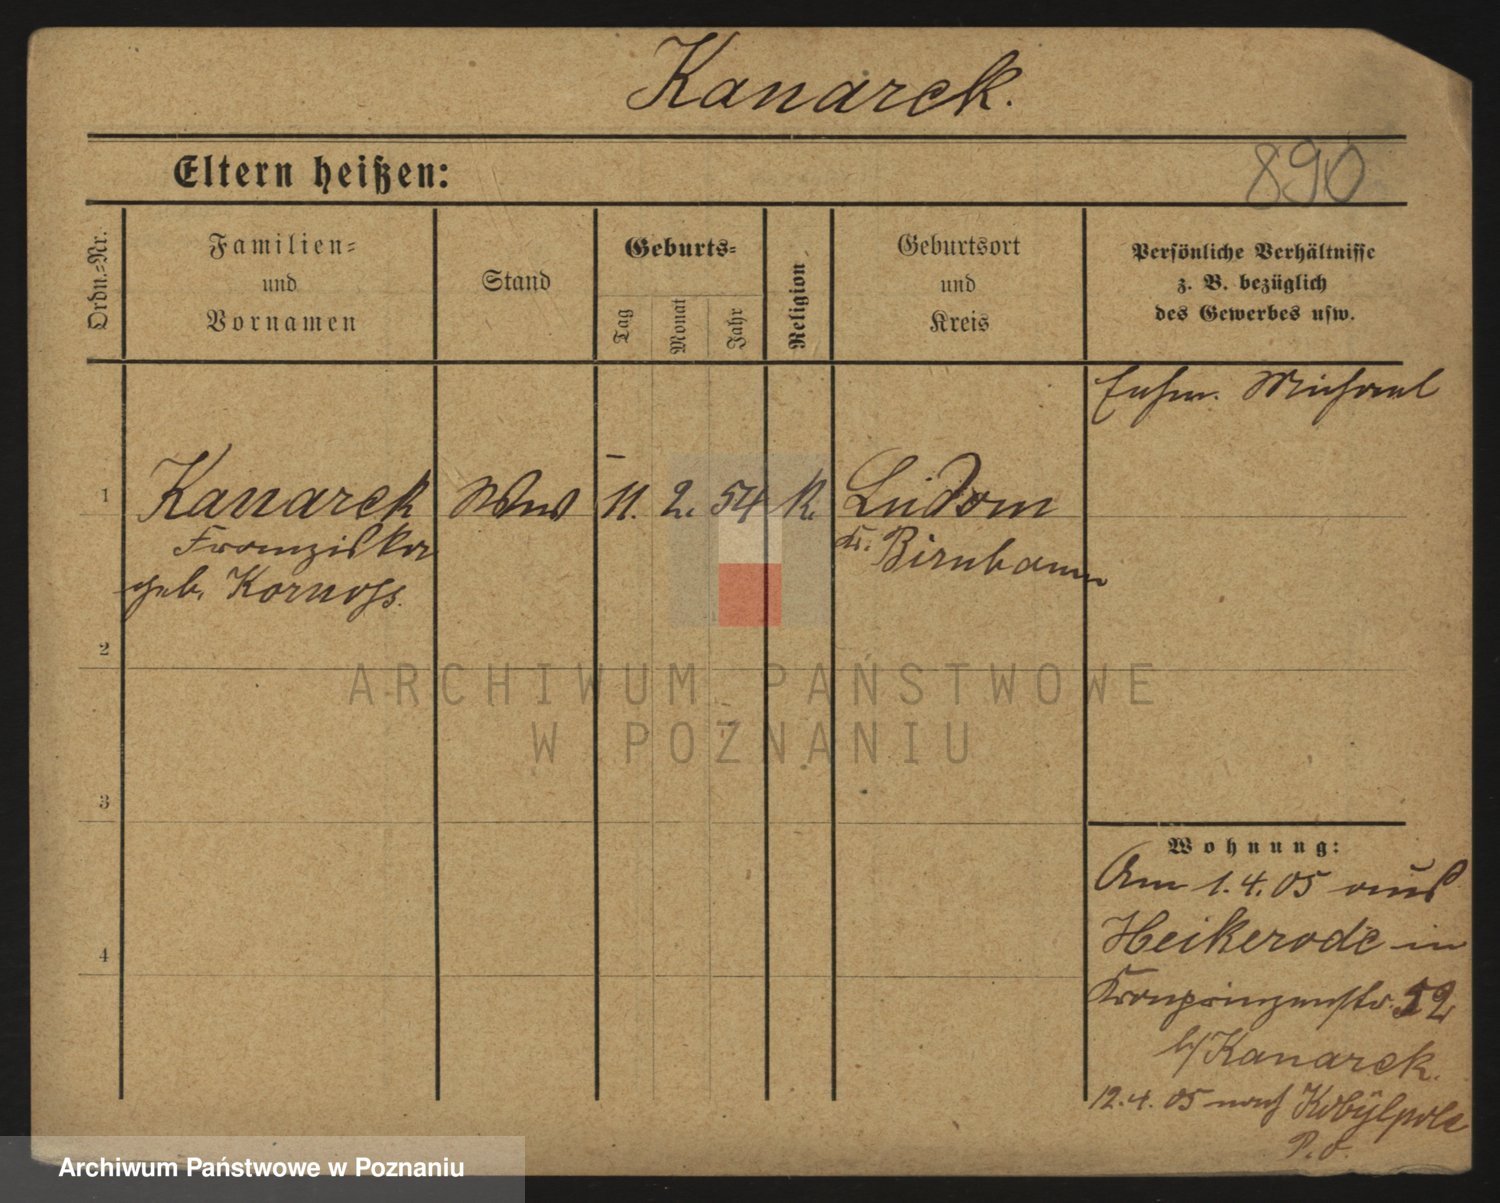 Kanarek.
Eltern heißen:
890
Ordn.=Nr.
Familien=
und
Vornamen
Stand
Geburts=
Tag
Monat
Jahr
Religion
Geburtsort
und
Kreis
Persönliche Verhältnisse
z. B. bezüglich
des Gewerbes usw.
Ehem. Michael
1
Kanarek
Franziska
geb.
Wwe
11. 2. 54
k.
Ludom
Kr. Birnbaum
2
3
4
Wohnung:
Am 1.4.05 aus
Heikerode in
Kronprinzenstr. 52
b/ Kanarek.
12.4.05 nach Kobylpole
P. O.
ARCHIWUM PAŃSTWOWE
W POZNANIU
Archiwum Państwowe w Poznaniu